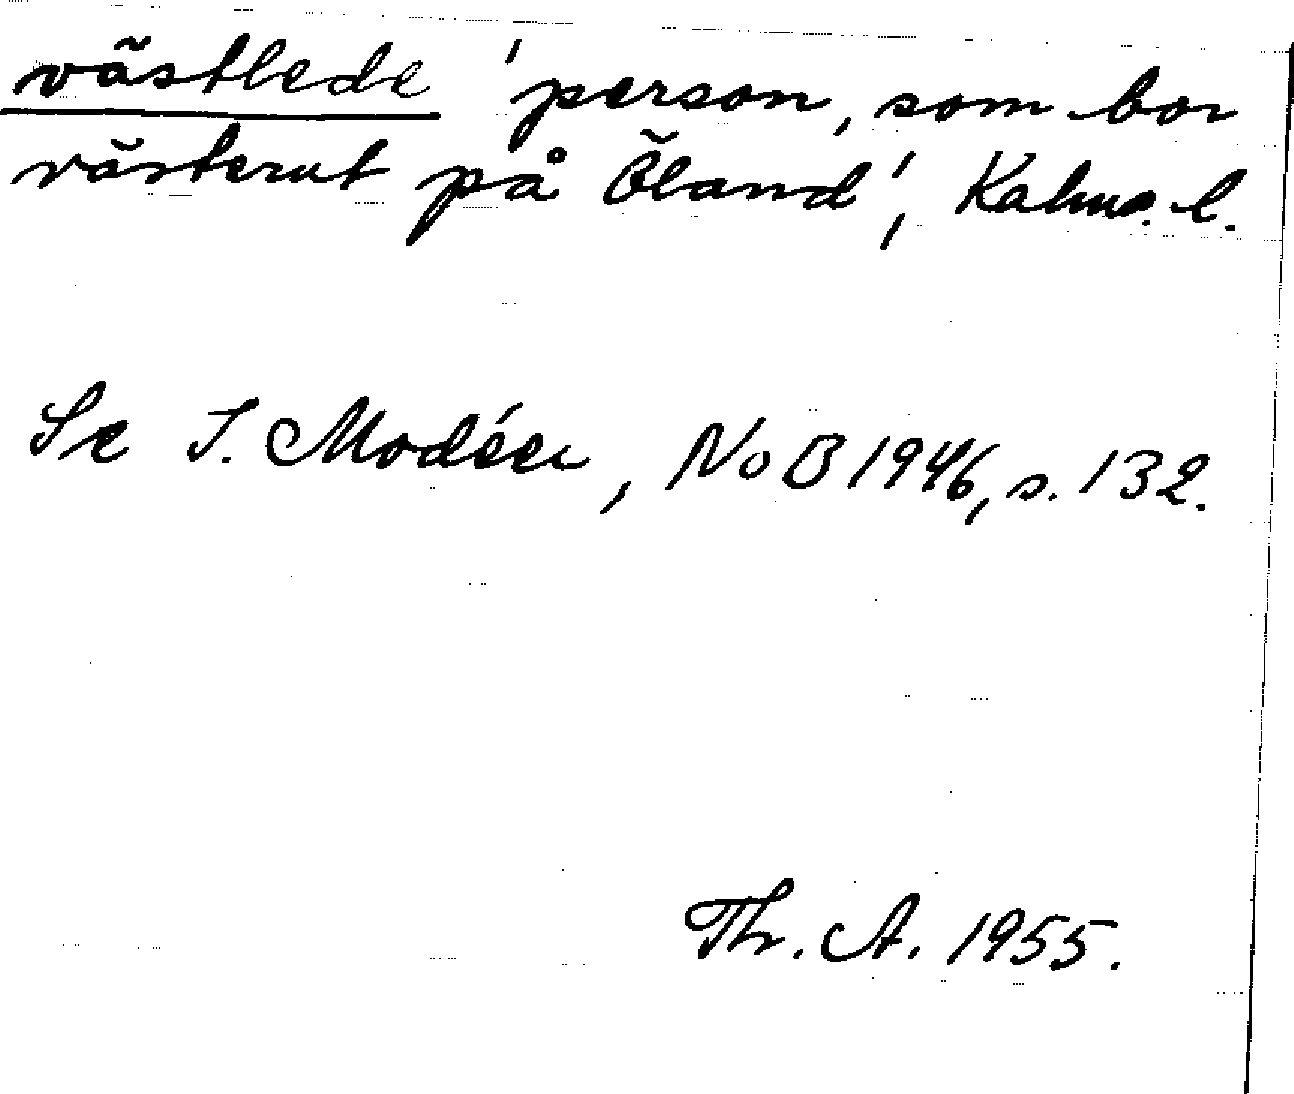 västlede 'person, som bor
västerut på Öland', Kalm. l.
Se I. Modéer, NoB 1946, s. 132.
Th. A. 1955.